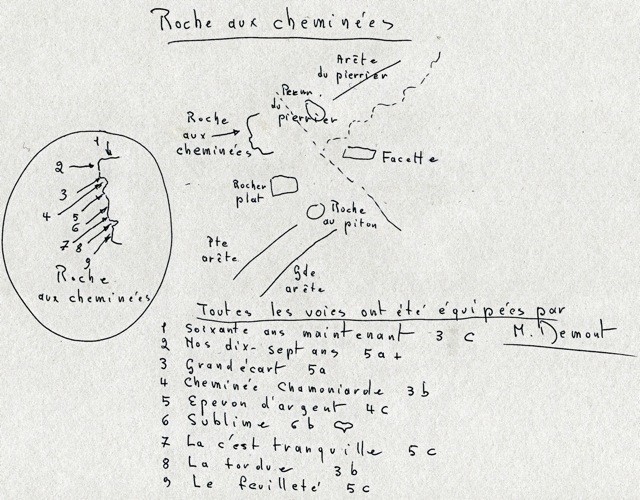 Roche aux cheminées
Arête
du pierrier
du
pierrier
Roche
aux
cheminées
Facette
Rocher
plat
Roche
au piton
Pte
arête
Gde
arête
1
2
3
4
5
6
7
8
9
Roche
aux cheminées
Toutes les voies ont été équipées par
M. Demont
1 Soixante ans maintenant 3 c
2 Nos dix-sept ans 5a+
3 Grand écart 5a
4 Cheminée Chamoniarde 3b
5 Eperon d'argent 4c
6 Sublime 6b
7 La c'est tranquille 5c
8 La tordue 3b
9 Le feuilleté 5c